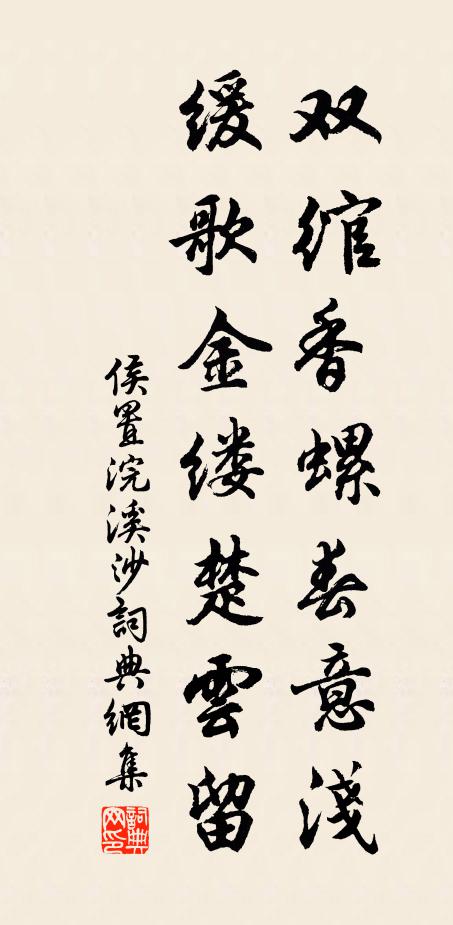 双绾香螺春意淺
缓歌金缕楚雲留
侯置浣溪沙詞典網集
詞典网印